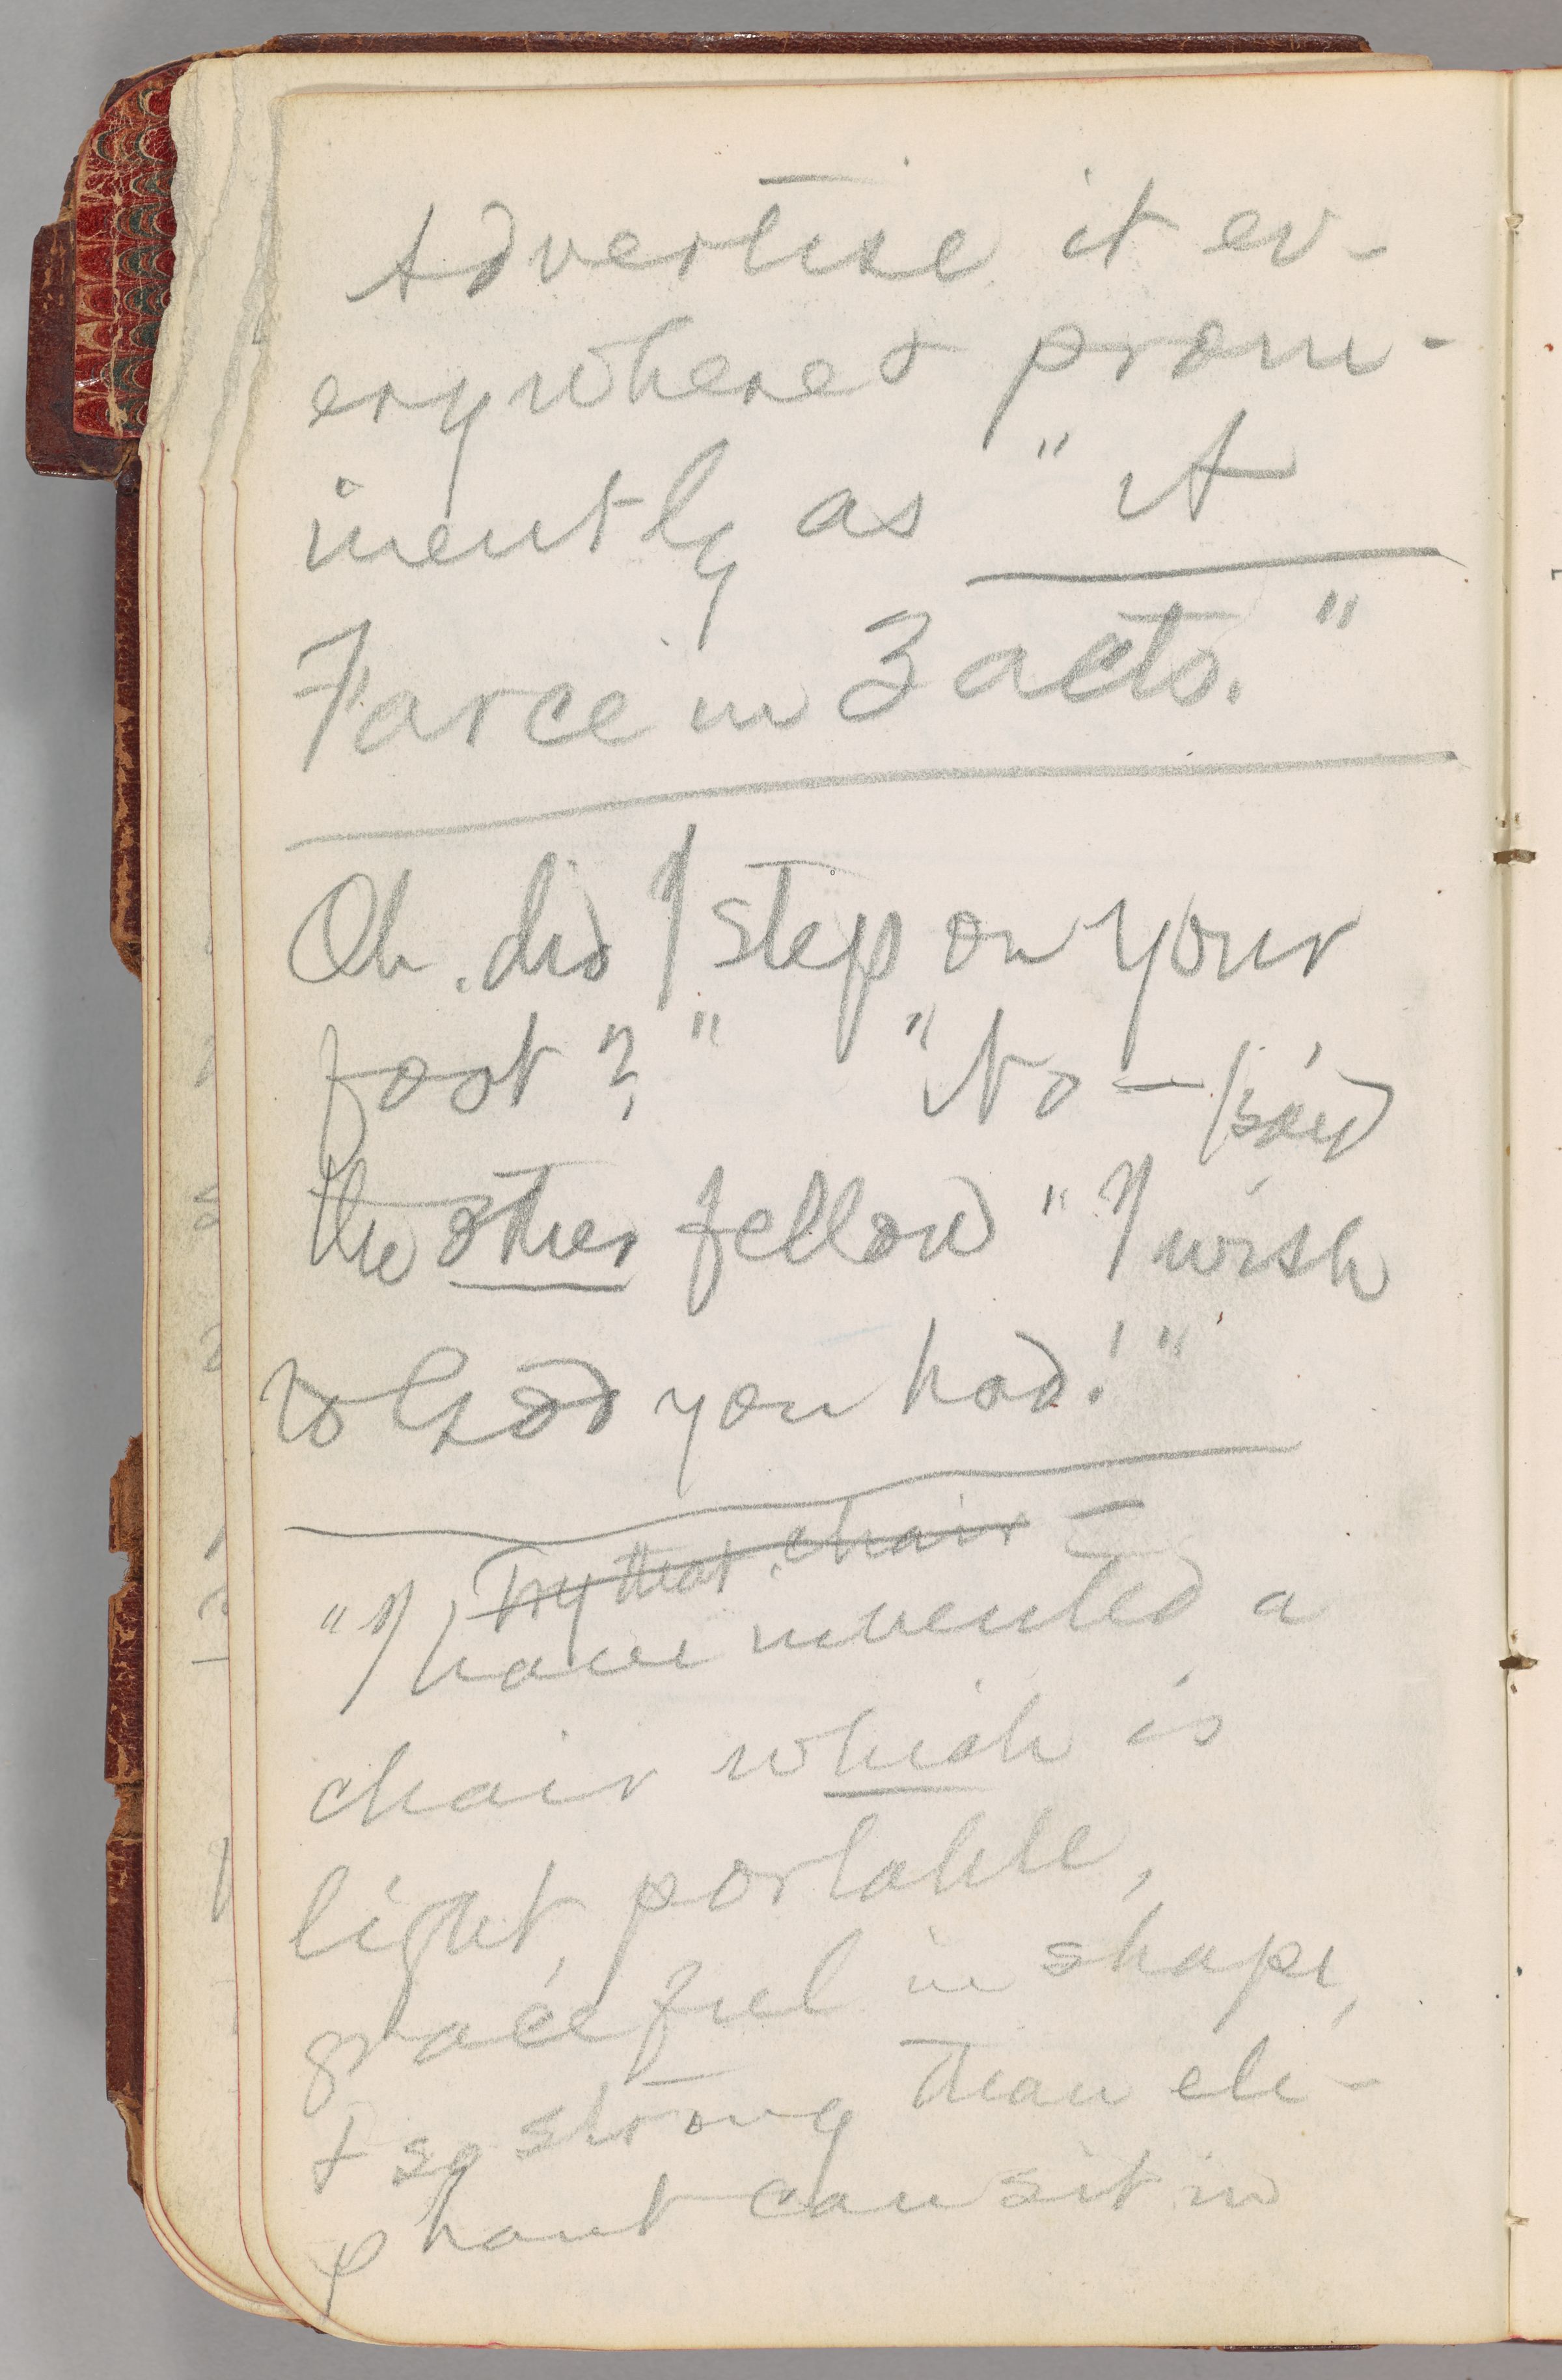 Advertise it ev-
erywhere & prom-
inently as "A
Farce in 3 acts."
Oh, did I step on your
foot?" "No — (said
the other fellow) "I wish
to God you had!"
Try that chair —
"I have invented a
chair which is
light, portable,
graceful in shape,
& so strong than ele-
phant can sit in